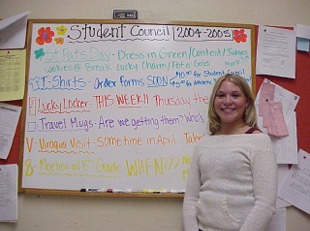 Student Council 2004-2005
St. Pat's Day - Dress in Green/Contest/Judges
Cookies @ Break Lucky Charm/Pot o Gold
T-Shirts - Order forms SOON for Student Council
Lucky Locker - THIS WEEK!! Thursday the
Travel Mugs - Are we getting them? Who's
V - Viroqua Visit - Some time in April.
8 - Meeting w/ 8th Grade WHEN???